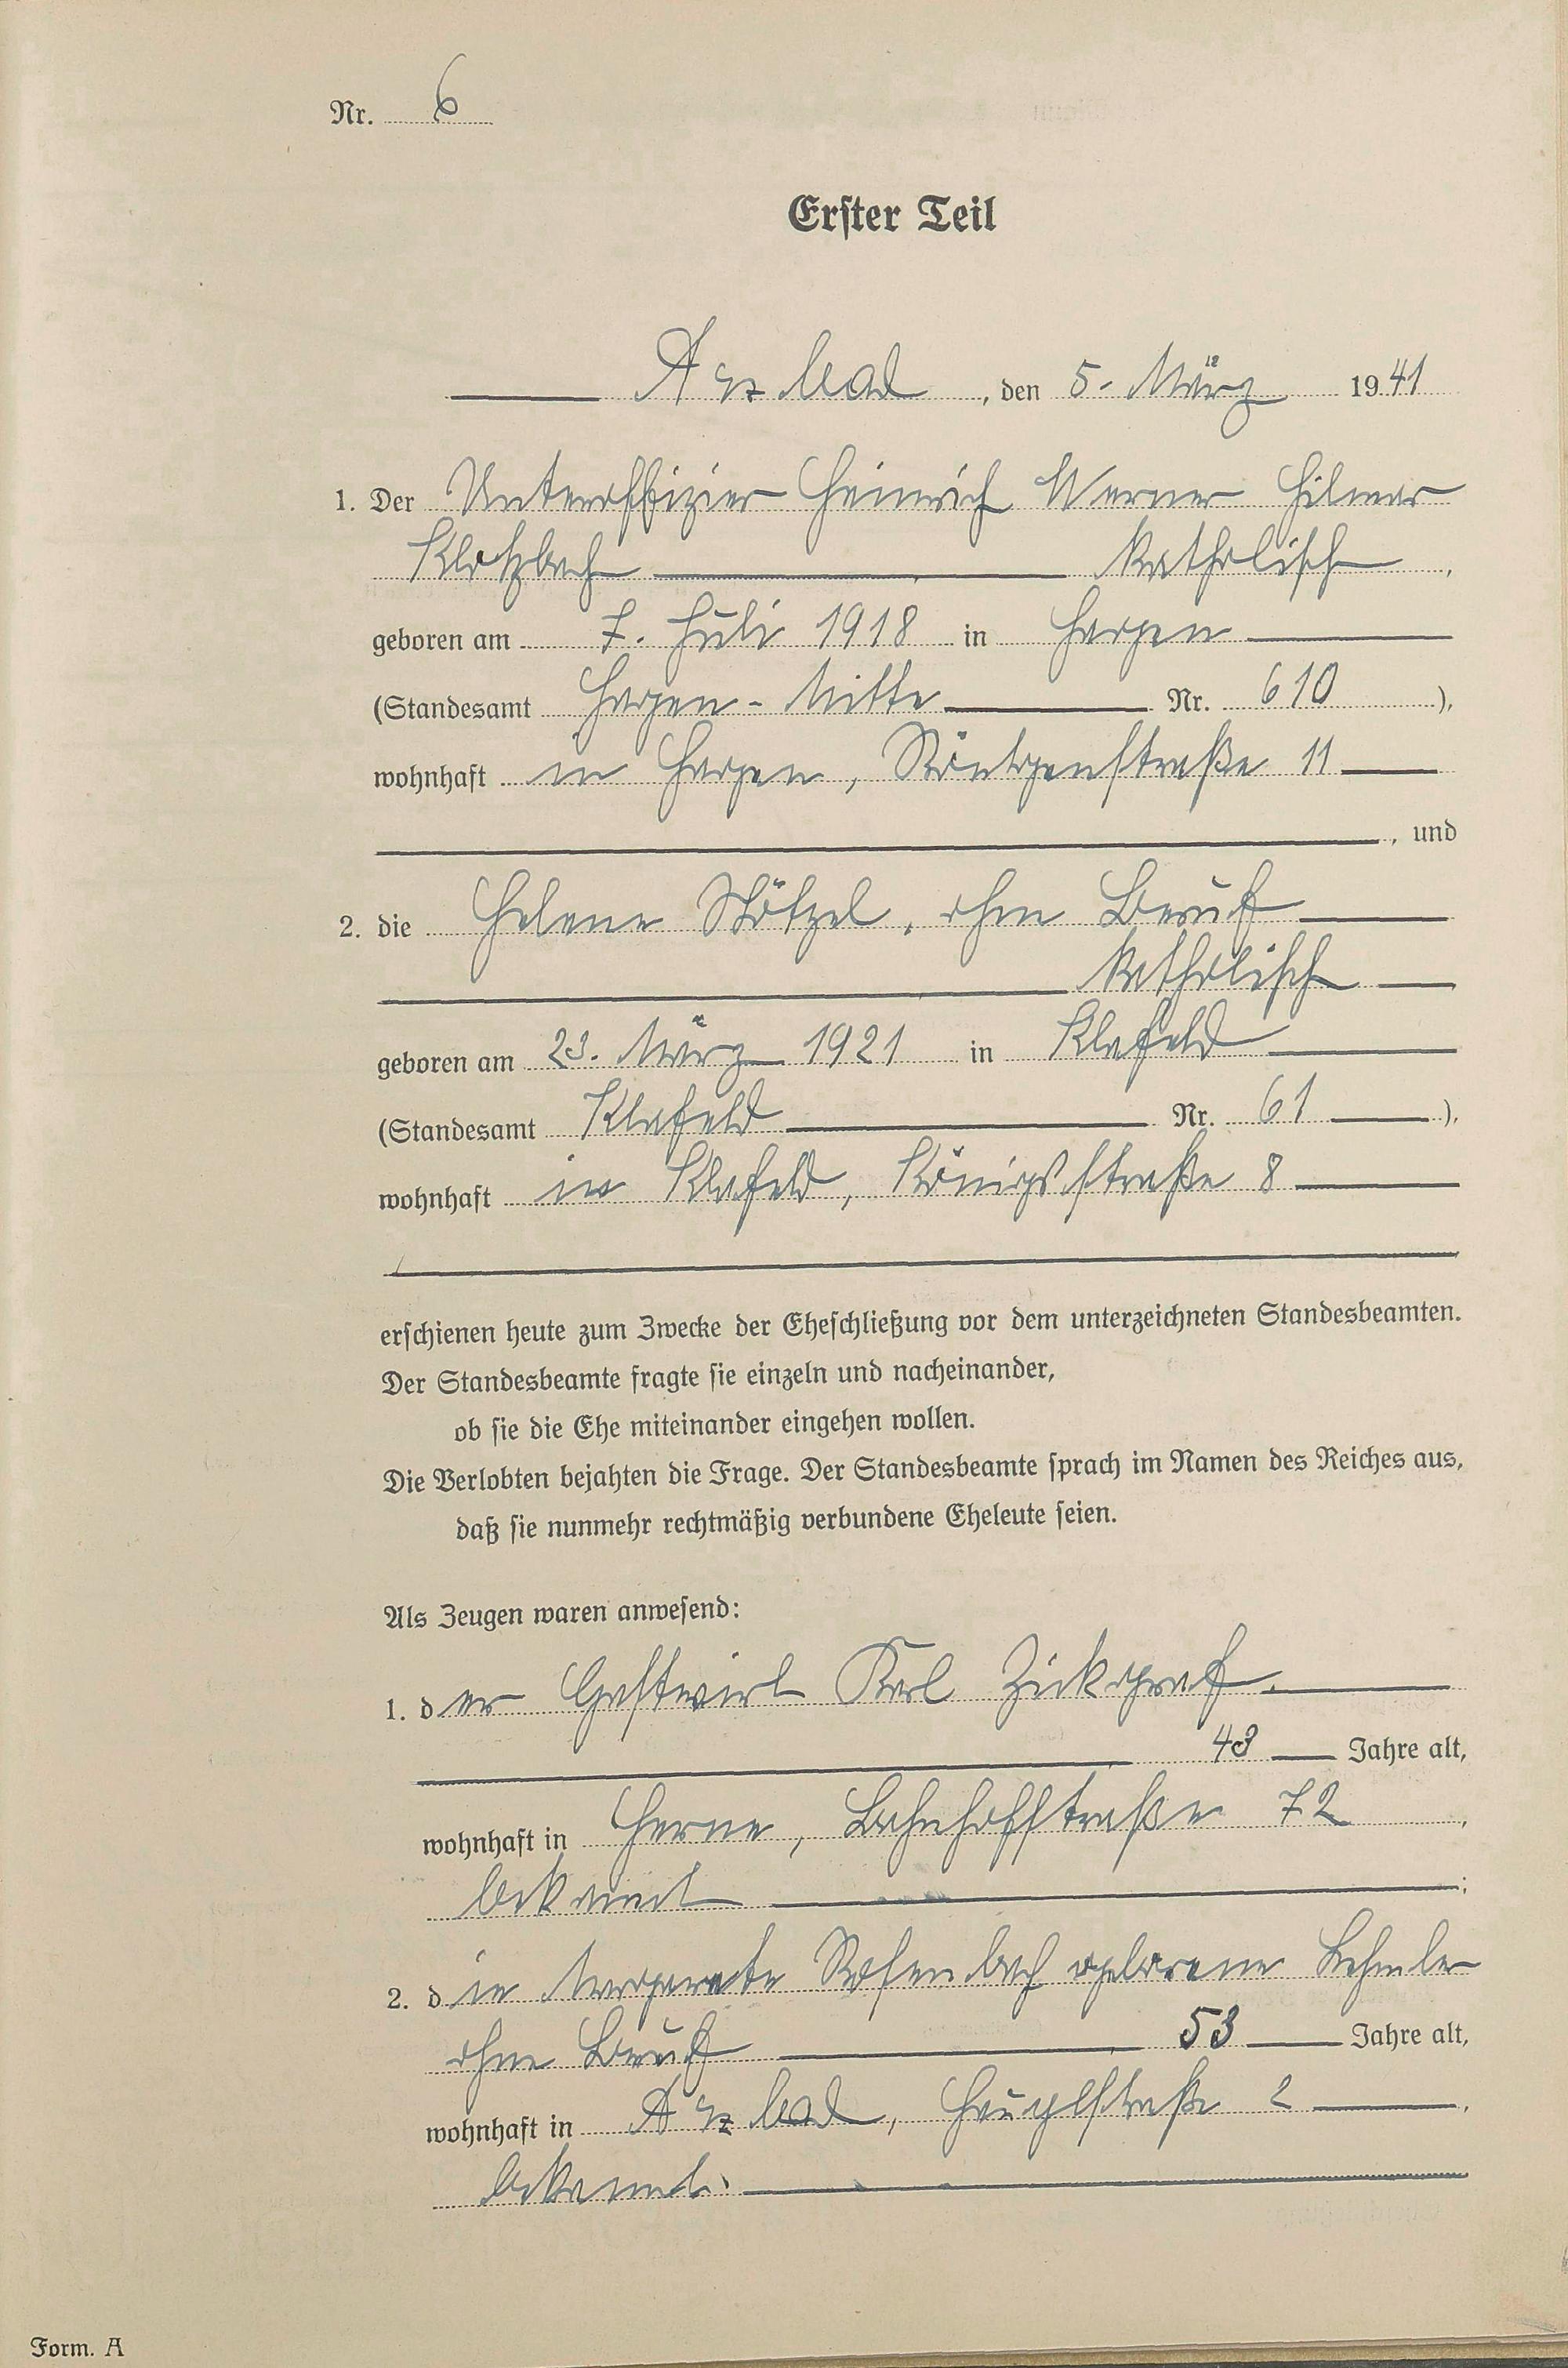 Nr. 6
Erster Teil
Arzbach, den 5. März 1941
1. Der Unteroffizier Heinrich Werner Hilmar
Klotzbach katholisch,
geboren am 7. Juli 1918 in Hagen
(Standesamt Hagen-Mitte Nr. 610),
wohnhaft in Hagen, Röntgenstraße 11
, und
2. die Helene Stötzel, ohne Beruf
katholisch
geboren am 23. März 1921 in Klafeld
(Standesamt Klafeld Nr. 61),
wohnhaft in Klafeld, Königsstraße 8
erschienen heute zum Zwecke der Eheschließung vor dem unterzeichneten Standesbeamten.
Der Standesbeamte fragte sie einzeln und nacheinander,
ob sie die Ehe miteinander eingehen wollen.
Die Verlobten bejahten die Frage. Der Standesbeamte sprach im Namen des Reiches aus,
daß sie nunmehr rechtmäßig verbundene Eheleute seien.
Als Zeugen waren anwesend:
1. der Gastwirt Karl Zickgraf.
43 Jahre alt,
wohnhaft in Herne, Bahnhofstraße 72,
bekannt;
2. die Margarete Rosenbach geborene
ohne Beruf 53 Jahre alt,
wohnhaft in Arzbach, Hauptstraße 2,
bekannt.
Form. A